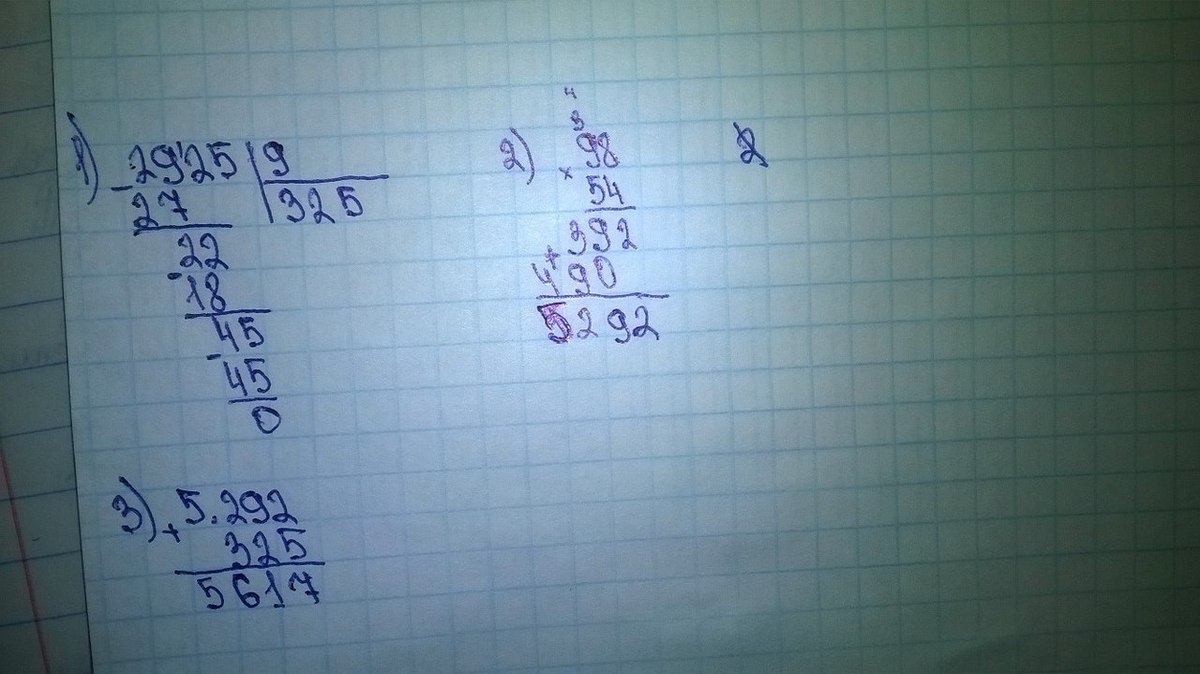 1) -2925 | 9
27 | 325
-22
18
-45
45
0
2) 4
3
98
× 54
392
+ 490
5292
2
3) + 5.292
325
5617